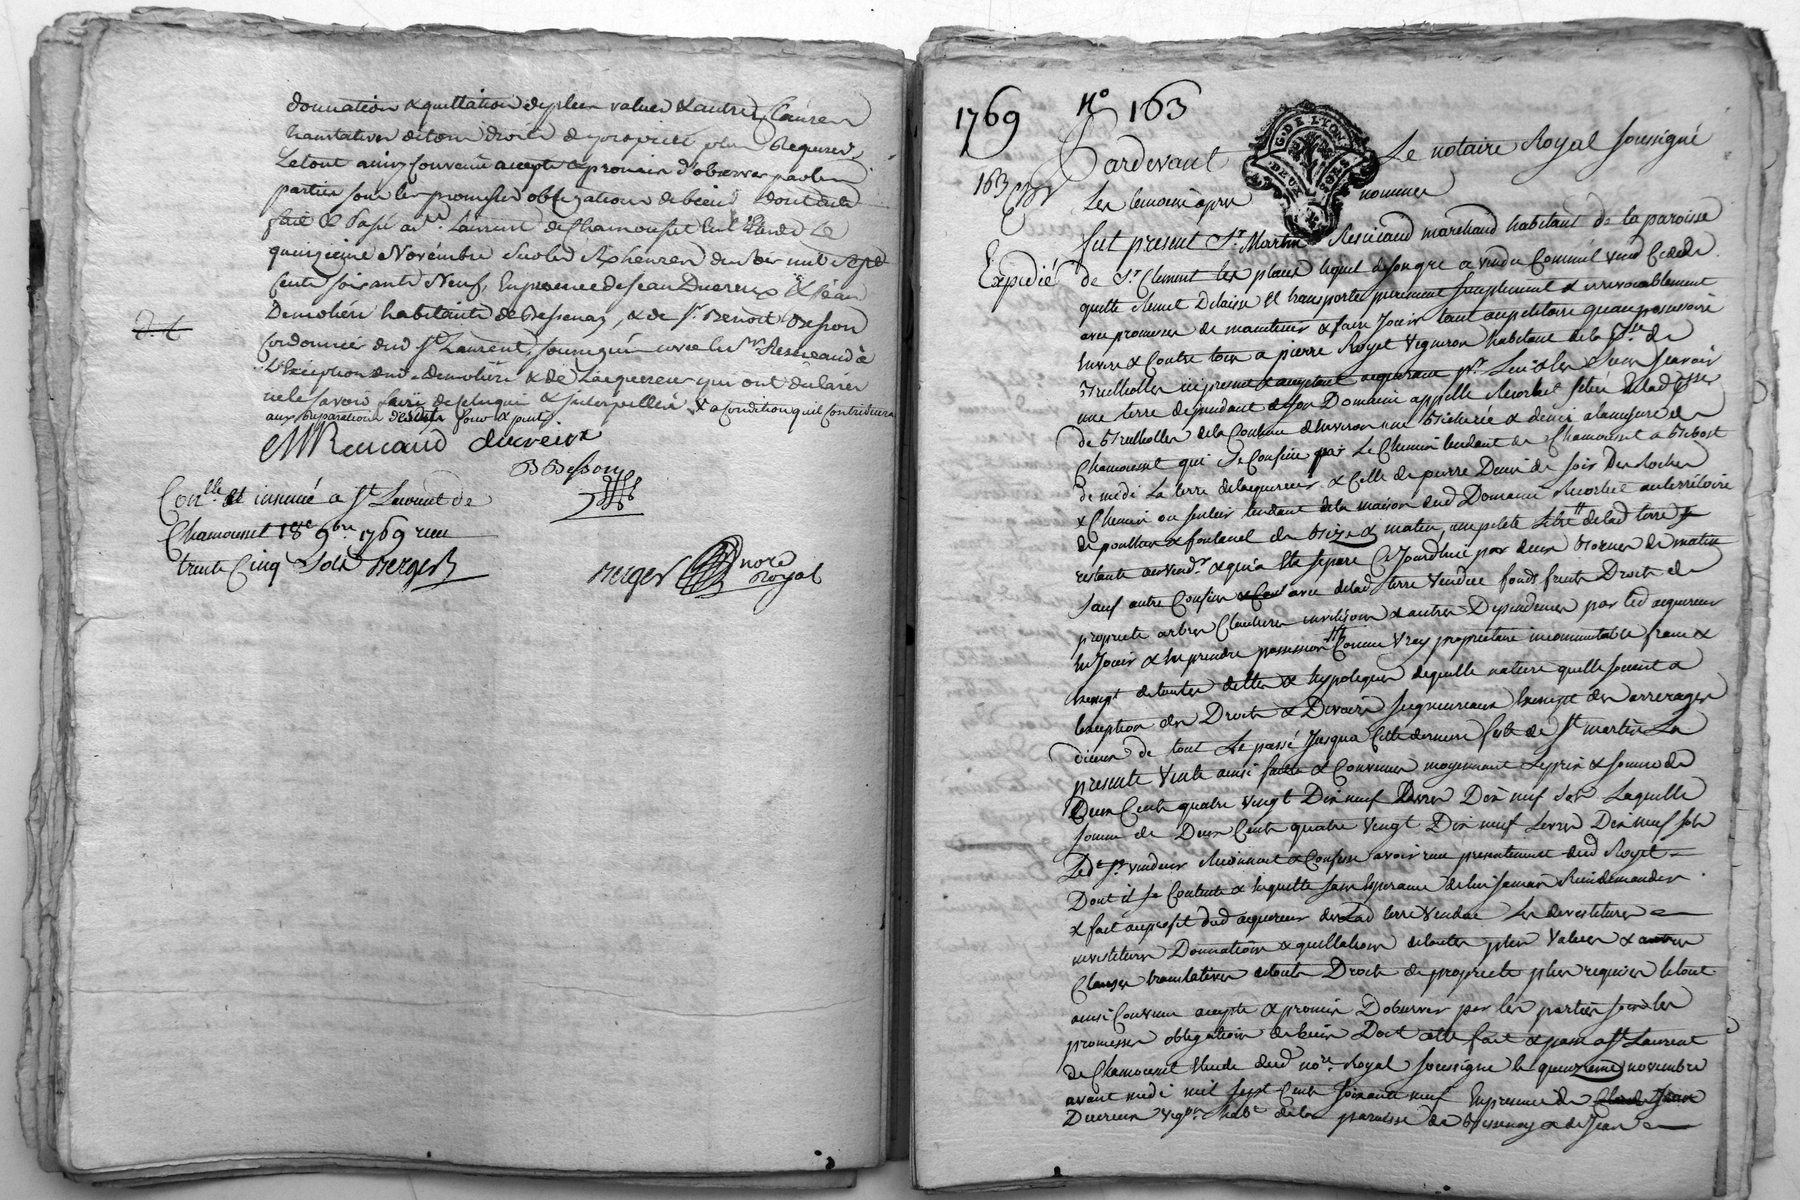 donnation & quittation de plus values & autres clauses
translatives de tous droits de propriété plus Requises
Le tout ainsy convenu accepté & promis d'observer par les
parties sous les promesses obligations de biens dont acte
fait & Passé a St. Laurent de Chamousset Etude Le
quinzieme Novembre sur les heures du soir mil sept
Cents soixante Neuf, En presence de Jean Ducreux & Jean
Demoliere habitants de Bessenay, & de Sr. Benoit Besson
Cordonnier dud St. Laurent, soussignés avec led Sr Resseaud à
L'Exception dud. demoliere & de L'acquereur qui ont déclarer
ne le savoir faire de ce Enquis & Interpellés & a condition quil contribuera
aux Reparations desdits four & puits
MResseaud ducreux
B Besson
Conllé et insinué a St. Laurent de
Chamousset 18e 9bre 1769 reçu
trente Cinq sols Berger
Berger nore
Royal
1769 No 163
Pardevant Le notaire Royal soussigné
163
Les temoins après nommes
G. DE LYON
DEUX SOLS
fut present Sr. Martin Resseaud marchand habitant de la paroisse
Expedié
de St. Clement les places lequel de son gré a vendu Comme il vend Cede
quitte Remet Delaisse Et transporte purement simplement & irrevocablement
avec promesse de maintenir & faire Jouir tant au petitoire quau possessoire
Envers & Contre tous a pierre Royet vigneron habitant de la psse de
Brullioles icy present & acceptant acquereur pr. Lui & les siens scavoir
une terre dependant de son Domaine appellé situé en lad psse
de Brullioles de la Contenue d'environ une bicherée & demi a la mesure de
Chamousset qui se Confine par Le Chemin tendant de Chamousset a
de midi La terre de lacquereur & Celle de pierre de soir
& Chemin ou sentier tendant de la maison dud Domaine au territoire
de & de bize & matin une petite de lad terre
restante au vendr. & qui a Ete separé Ce Jourdhui par deux bornes de matin
sauf autre Confins avec de lad terre vendue fonds fruits Droits de
propriete arbres Clotures & autres Dependances par led acquereur
En Jouir & En prendre possession Comme vray proprietaire incommutable franc &
exempt de toutes dettes & hypoteques de quelle nature quelle soient a
lexception des Droits & Devoirs seigneuriaux Exempt des arrerages
diceux de tout Le passé Jusqua Cette derniere fete de St martin La
presente vente ainsi faitte & Convenue moyennant Le prix & somme de
Deux Cents quatre vingt Dix neuf Livres Dix neuf sols Laquelle
somme de Deux Cents quatre vingt Dix neuf Livres Dix neuf sols
Led. Sr. vendeur Reconnoit & Confesse avoir reçu presentement dud Royet
Dont il se Contente & En quitte sans Esperance de lui Jamais Rien demander
& fait au profit dud acquereur de Lad terre Vendue Les devestitures
investitures Donnations & quittations de toutes plus values & autres
Clauses translatives de toute Droits de propriete plus requises le tout
ainsi Convenu accepté & promis D'observer par les parties sous les
promesses obligations de biens Dont acte fait & passé a St Laurent
de Chamousset Etude dud nore. Royal soussigné le quinzieme novembre
avant midi mil sept Cents soixante neuf En presence de Claude Jean
Ducreux vigon. habt. de la paroisse de Bessenay & de Jean